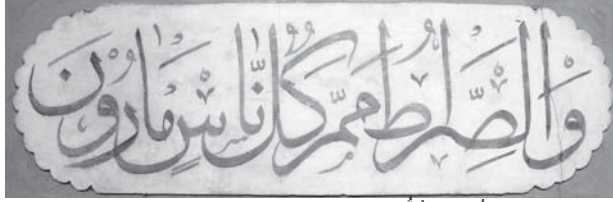 وَالصِّرَاطُ مَمَرُّ كُلِّ نَّاسٍ مَارُّونَ